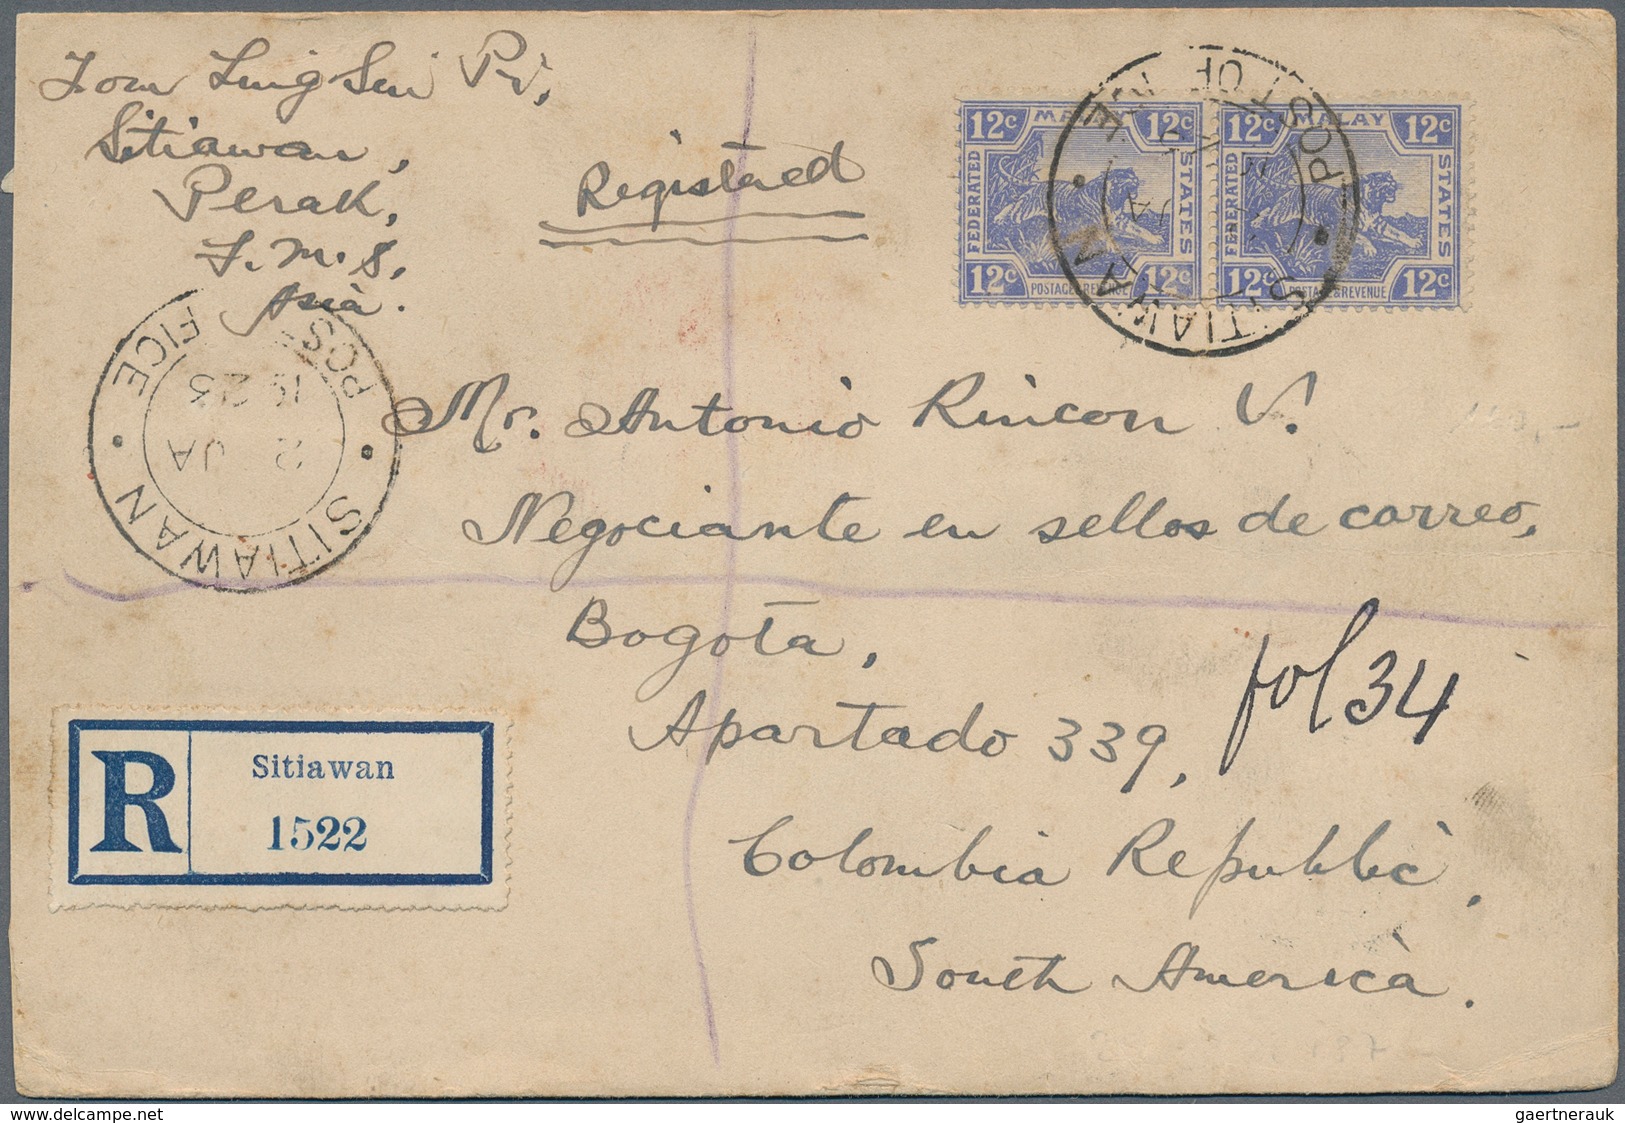 Sitiawan,
Perak,
F.M.S.
Asia.
Registered
FEDERATED MALAY STATES
12c 12c
12c 12c
POSTAGE & REVENUE
FEDERATED MALAY STATES
12c 12c
12c 12c
POSTAGE & REVENUE
SITIAWAN POST OFFICE
JA
POST OFFICE
1923
2 JA
SITIAWAN
Mr. Antonio Rincon V.
Negociante en sellos de correo,
Bogota,
Apartado 339,
fol 34
Colombia Republic,
South America.
R
Sitiawan
1522
delcampe.net
gaertnerauk